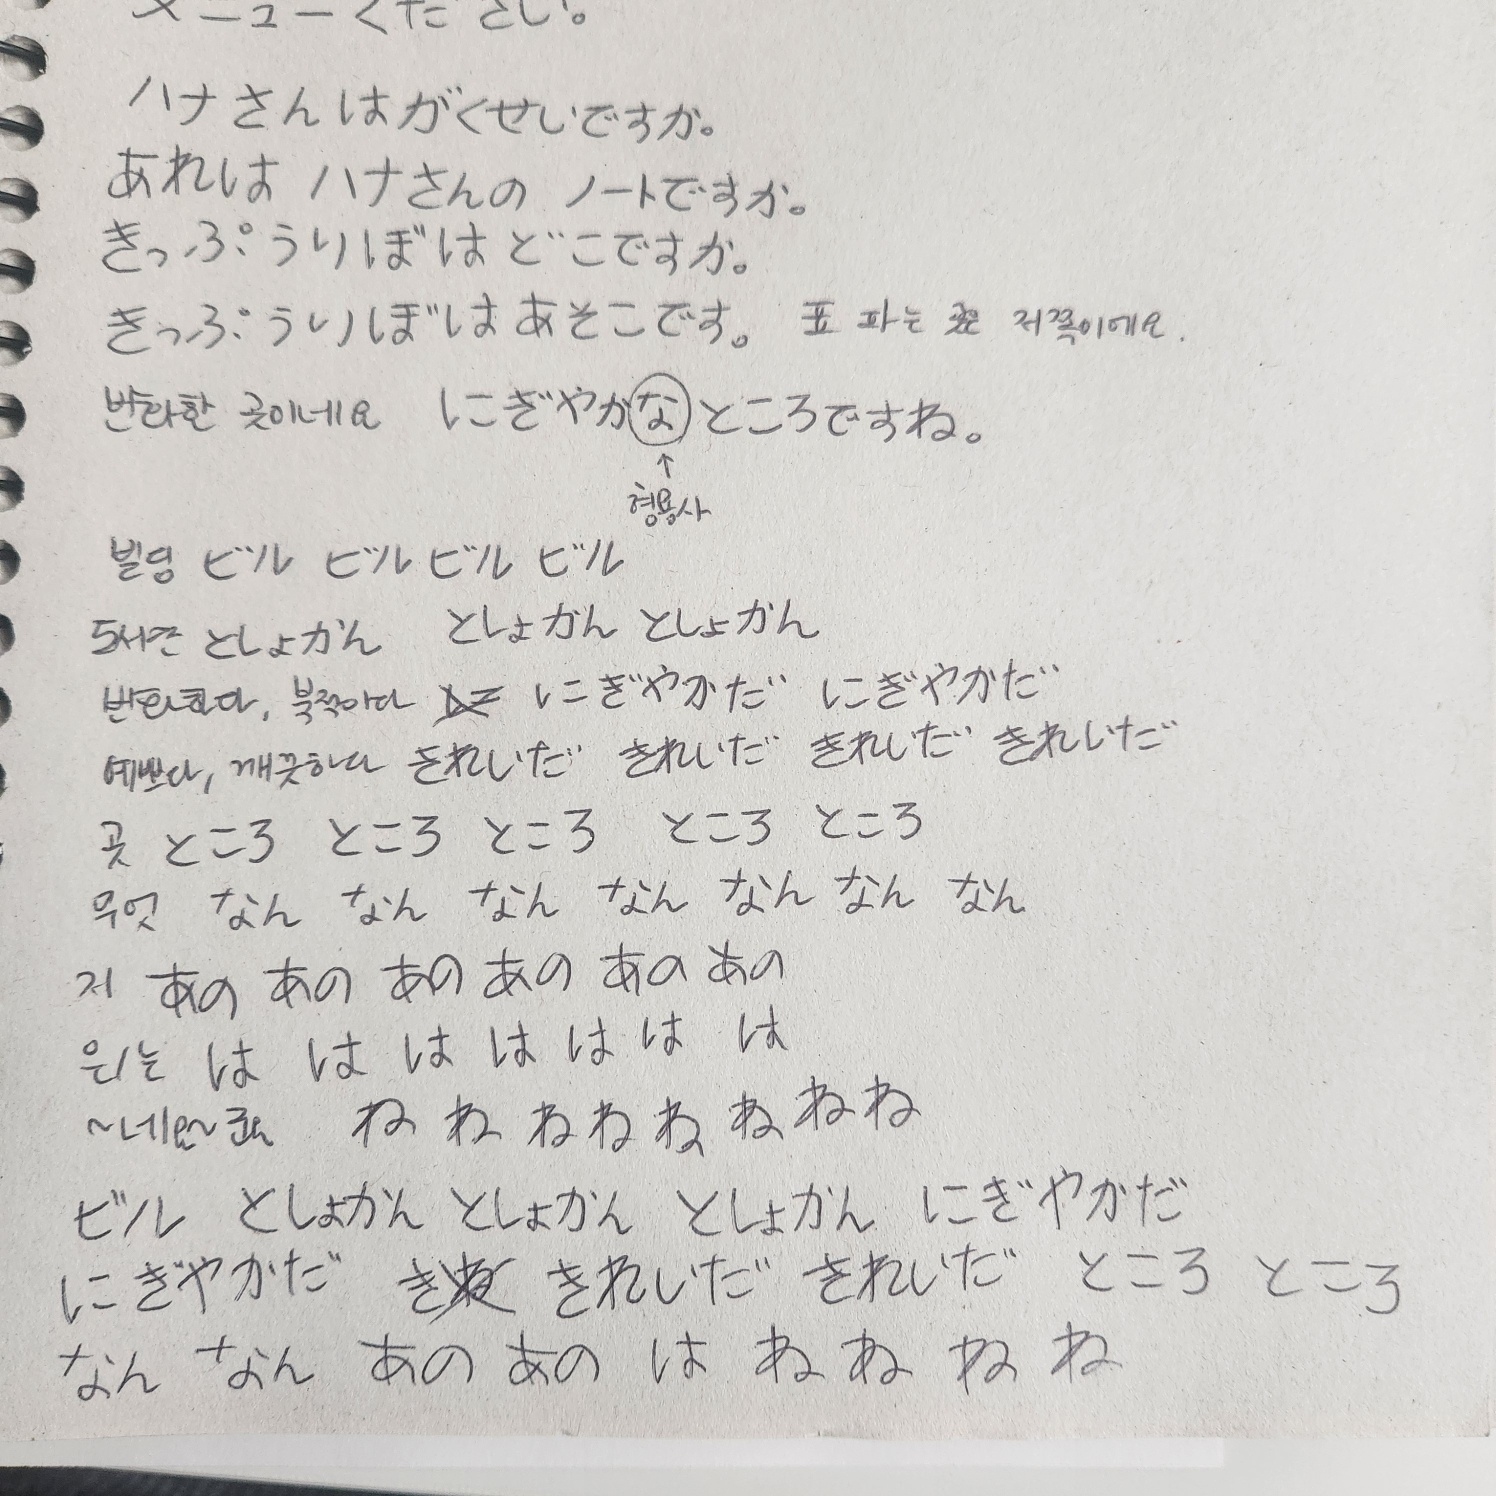 メニューください。
ハナさんはがくせいですか。
あれは ハナさんの ノートですか。
きっぷうりばは どこですか。
きっぷうりばはあそこです。 표 파는 곳 저쪽이에요.
번화한 곳이네요 にぎやかなところですね。
↑
형용사
빌딩 ビル ビル ビル ビル
としょかん としょかん としょかん
번화하다, 북적이다 にぎやかだ にぎやかだ
예쁘다, 깨끗하다 きれいだ きれいだ きれいだ きれいだ
곳 ところ ところ ところ ところ ところ
무엇 なん なん なん なん なん なん なん
저 あの あの あの あの あの あの
은/는 は は は は は は は
~네요~군요 ね ね ね ね ね ね ね ね
ビル としょかん としょかん としょかん にぎやかだ
にぎやかだ きれいだ きれいだ ところ ところ
なん なん あの あの は ね ね ね ね